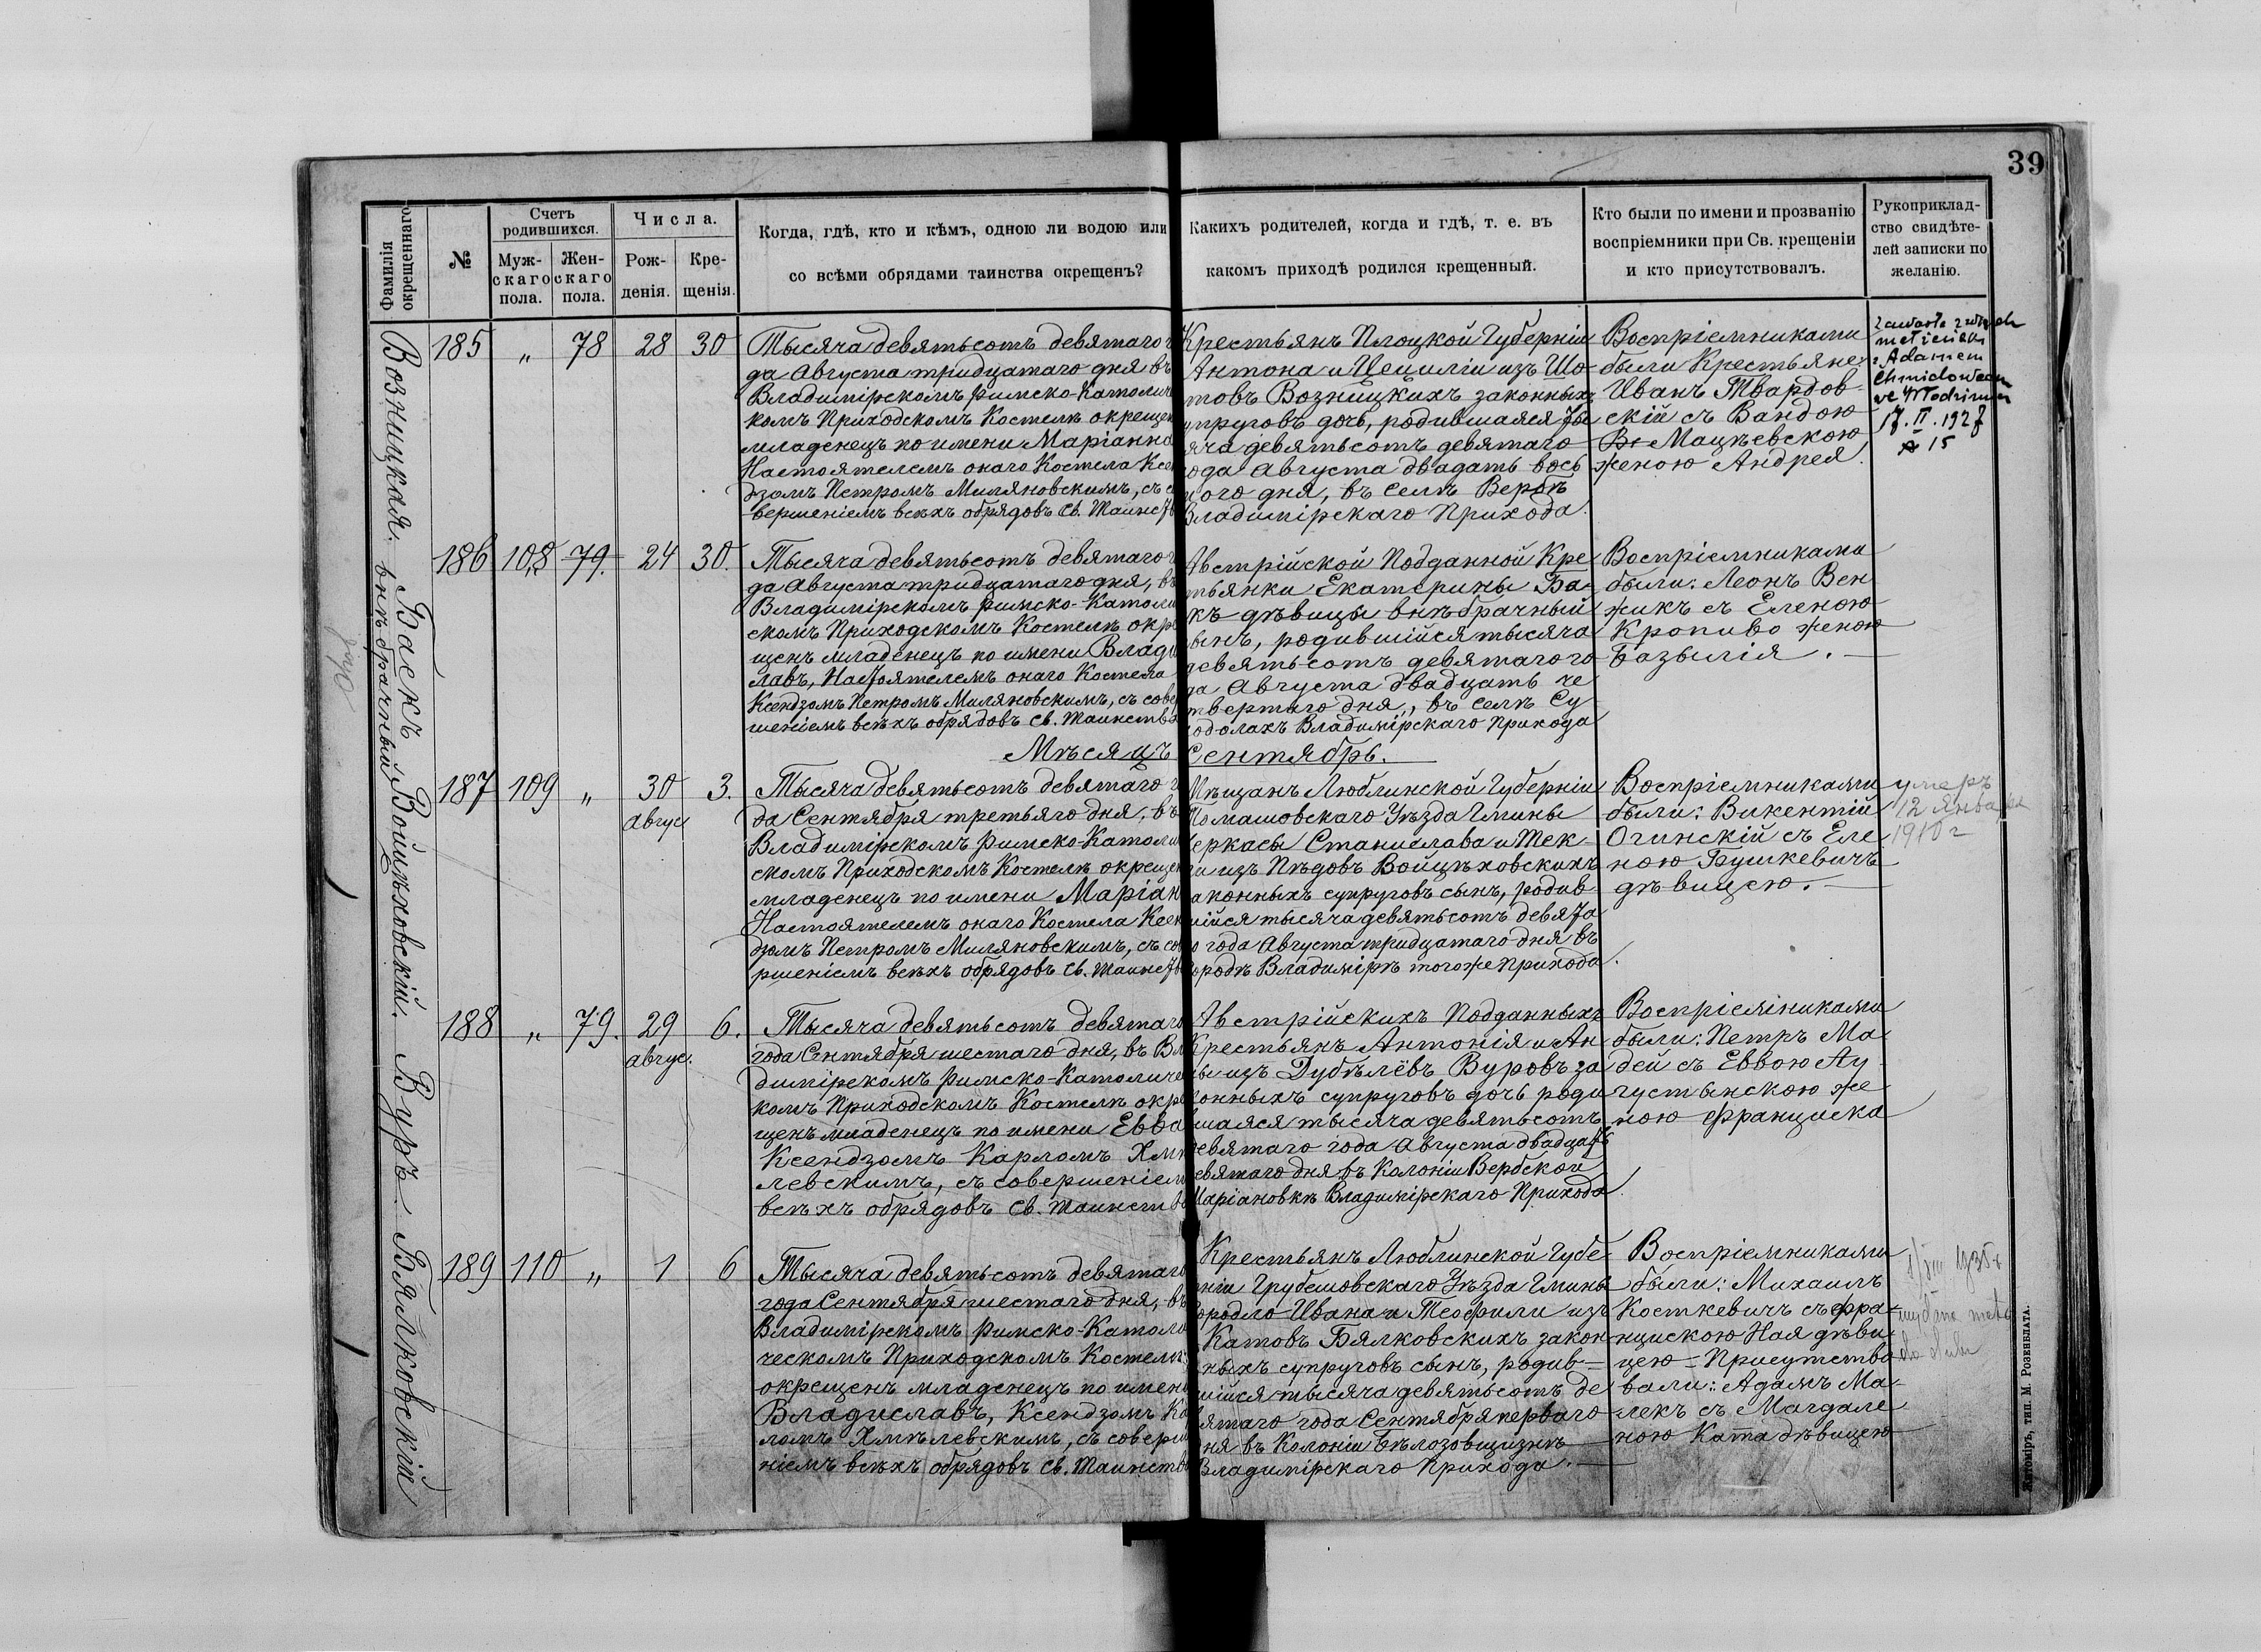 39
Фамилія окрещеннаго
№
Счетъ родившихся.
Муж-скаго пола.
Жен-скаго пола.
Числа.
Рож-денія.
Кре-щенія.
Когда, гдѣ, кто и кѣмъ, одною ли водою или
со всѣми обрядами таинства окрещенъ?
Какихъ родителей, когда и гдѣ, т. е. въ
какомъ приходѣ родился крещенный.
Кто были по имени и прозванію
воспріемники при Св. крещеніи
и кто присутствовалъ.
Рукоприклад-
ство свидѣте-
лей записки по
желанію.
Возницкая.
185 „ 78 28 30
Тысяча девятьсотъ девятаго
да Августа тридцатаго дня въ
Владимірскомъ Римско-Католич
комъ Приходскомъ Костелѣ окрещен
младенецъ по имени Маріанна
Настоятелемъ онаго Костела Ксен
дзомъ Петромъ Миляновскимъ, съ с
вершеніемъ всѣхъ обрядовъ Св. Таинств
Крестьянъ Плоцкой Губерніи
Антона и Цециліи изъ Шо-
товъ Возницкихъ законныхъ
упруговъ дочь, родившаяся ты
яча девятьсотъ девятаго
ода Августа двадать вось
мого дня, въ селѣ Вербѣ
Владимірскаго Прихода.
Воспріемниками
были Крестьяне
Иванъ Твардов-
скій съ Вандою
Мацѣевскою
женою Андрея.
z Adamem
17.II.1927
№ 15
Баскъ
внѣбрачный
186 108 79. 24 30.
Тысяча девятьсотъ девятаго
да Августа тридцатаго дня, въ
Владимірскомъ Римско-Католи
скомъ Приходскомъ Костелѣ окре
щенъ младенецъ по имени Влади
лавъ, Настоятелемъ онаго Костела
Ксендзомъ Петромъ Миляновскимъ, съ сове
шеніемъ всѣхъ обрядовъ Св. Таинства
Австрійской Подданной Кре
тьянки Екатерины Ба-
къ дѣвицы внѣбрачный
ынъ, родившійся тысяча
девятьсотъ девятаго го
да Августа двадцать че
твертаго дня, въ селѣ Су
одолахъ Владимірскаго Прихода
Воспріемниками
были: Леонъ Вен
жикъ съ Еленою
Кропиво женою
Базылія.
Мѣсяцъ Сентябрь.
Войцѣховскій.
187 109 „ 30 3.
Авгус
Тысяча девятьсотъ девятаго г
да Сентября третьяго дня, въ
Владимірскомъ Римско-Католи
скомъ Приходскомъ Костелѣ окрещен
младенецъ по имени Маріан
Настоятелемъ онаго Костела Ксен
дзомъ Петромъ Миляновскимъ, съ сов
ршеніемъ всѣхъ обрядовъ Св. Таинств
Мѣщанъ Люблинской Губерніи
Томашовскаго Уѣзда Гмины
Черкасы Станислава и Тек-
и изъ Пѣдовъ Войцѣховскихъ
аконныхъ супруговъ сынъ, родив
шійся тысяча девятьсотъ девята
о года Августа тридцатаго дня въ
ородѣ Владимірѣ того же Прихода.
Воспріемниками
были: Викентій
Огинскій съ Еле
ною Бушкевичъ
дѣвицею.
умеръ
12 Января
1910 г
Вуръ
188 „ 79. 29 6.
авгус.
Тысяча девятьсотъ девятаго
года Сентября шестаго дня, въ Вл
димірскомъ Римско-Католичес
комъ Приходскомъ Костелѣ окре
щенъ младенецъ по имени Евва
Ксендзомъ Карломъ Хмѣ
левскимъ, съ совершеніем
всѣхъ обрядовъ Св. Таинств
Австрійскихъ Подданныхъ
Крестьянъ Антонія и Ан
ны изъ Дубѣлёвъ Вуровъ за
конныхъ супруговъ дочь роди
вшаяся тысяча девятьсотъ
девятаго года Августа двадцать
евятаго дня въ Колоніи Вербской
Маріановкѣ Владимірскаго Прихода.
Воспріемниками
были: Петръ Ма
дей съ Еввою Ау
густынскою же
ною Франциска
Бялковскій
189 110 „ 1 6
Тысяча девятьсотъ девятаго
года Сентября шестаго дня, въ
Владимірскомъ Римско-Католи
ческомъ Приходскомъ Костелѣ
окрещенъ младенецъ по имени
Владиславъ, Ксендзомъ Ка
ломъ Хмѣлевскимъ, съ соверш
ніемъ всѣхъ обрядовъ Св. Таинств
Крестьянъ Люблинской Губе
рніи Грубешовскаго Уѣзда Гмины
Городло Ивана и Теофили изъ
Катовъ Бялковскихъ закон
ныхъ супруговъ сынъ, родив-
шійся тысяча девятьсотъ де
вятаго года Сентября перваго
дня въ Колоніи Бѣлозовщизнѣ
Владимірскаго Прихода.
Воспріемниками
были: Михаилъ
Косткевичъ съ Фра-
нцискою Ная дѣви
цею - Присутство
вали: Адамъ Ма-
лекъ съ Магдале
ною Ката дѣвицею
Житоміръ, тип. М. Розенблата.